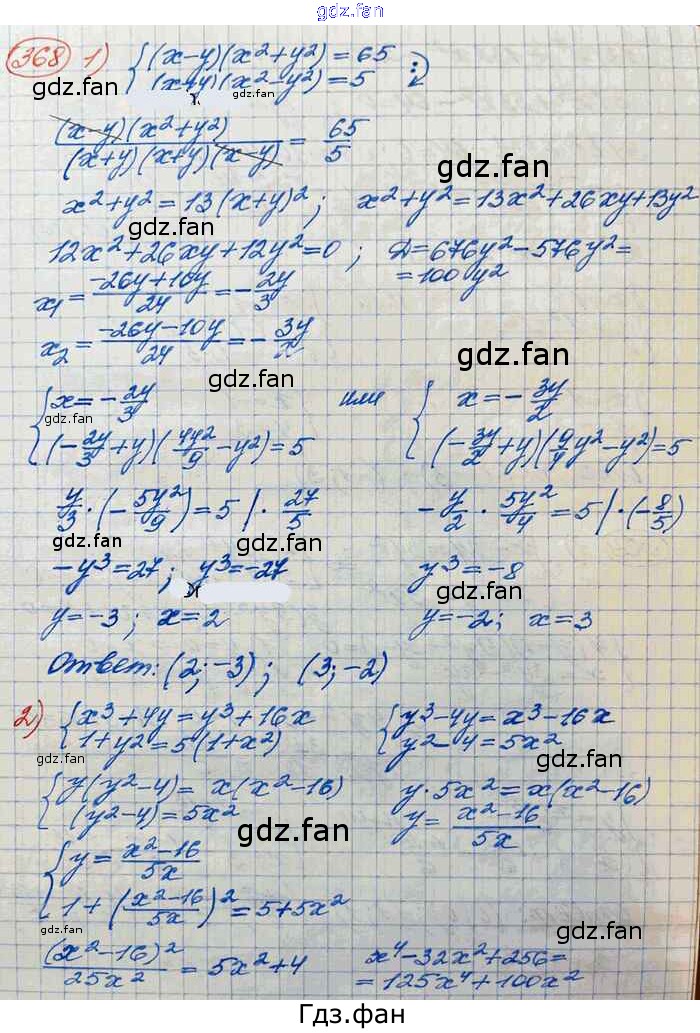 gdz.fan
368 1) {(x-y)(x²+y²)=65
(x+y)(x²-y²)=5 :
gdz.fan
gdz.fan
gdz.fan
(x-y)(x²+y²)/((x+y)(x+y)(x-y)) = 65/5
gdz.fan
x²+y²=13(x+y)²; x²+y²=13x²+26xy+13y²
gdz.fan
12x²+26xy+12y²=0; D=676y²-576y²=
=100y²
gdz.fan
x₁=(-26y+10y)/24=-2y/3
x₂=(-26y-10y)/24=-3y/2
gdz.fan
gdz.fan
{x=-2y/3 или {x=-3y/2
gdz.fan
(-2y/3+y)(4y²/9-y²)=5 (-3y/2+y)(9/4y²-y²)=5
y/3·(-5y²/9)=5 |·27/5 -y/2·5y²/4=5 |·(-8/5)
gdz.fan
gdz.fan
-y³=27; y³=-27 y³=-8
gdz.fan
y=-3; x=2 y=-2; x=3
Ответ: (2;-3); (3;-2)
gdz.fan
2) {x³+4y=y³+16x {y³-4y=x³-16x
1+y²=5(1+x²) y²-4=5x²
gdz.fan
gdz.fan
{y(y²-4)=x(x²-16) y·5x²=x(x²-16)
(y²-4)=5x² y=(x²-16)/5x
gdz.fan
gdz.fan
{y=(x²-16)/5x
1+((x²-16)/5x)²=5+5x²
gdz.fan
gdz.fan
(x²-16)²/25x²=5x²+4 x⁴-32x²+256=
=125x⁴+100x²
gdz.fan
Гдз.фан